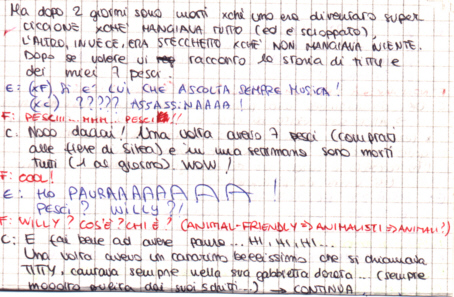 Ma dopo 2 giorni sono morti xchè uno era diventato super
CICCIONE XCHÈ MANGIAVA TUTTO (ed è scoppiato),
L'ALTRO, INVECE, ERA STECCHETTO XCHÈ NON MANGIAVA NIENTE.
Dopo se volete vi racconto la storia di TITTY e
dei miei 7 pesci.
E: (XF) SÌ È LUI CHE ASCOLTA SEMPRE MUSICA!
(XC) ????? ASSASSINAAAA!
F: PESCI!... HHH... PESCI!!
C: Nooo daaai! Una volta avevo 7 pesci (comprati
alle fiere di Silea) e in una settimana sono morti
tutti (1 al giorno). WOW!
F: COOL!
E: HO PAURAAAAAAAA!
PESCI? WILLY?!
F: WILLY? COS'È? CHI È? (ANIMAL-FRIENDLY => ANIMALISTI => ANIMALI?)
C: E fai bene ad avere paura... HI, HI, HI...
Una volta avevo un canarino bellissimo che si chiamava
TITTY, cantava sempre nella sua gabbietta dorata... (sempre
) → CONTINUA